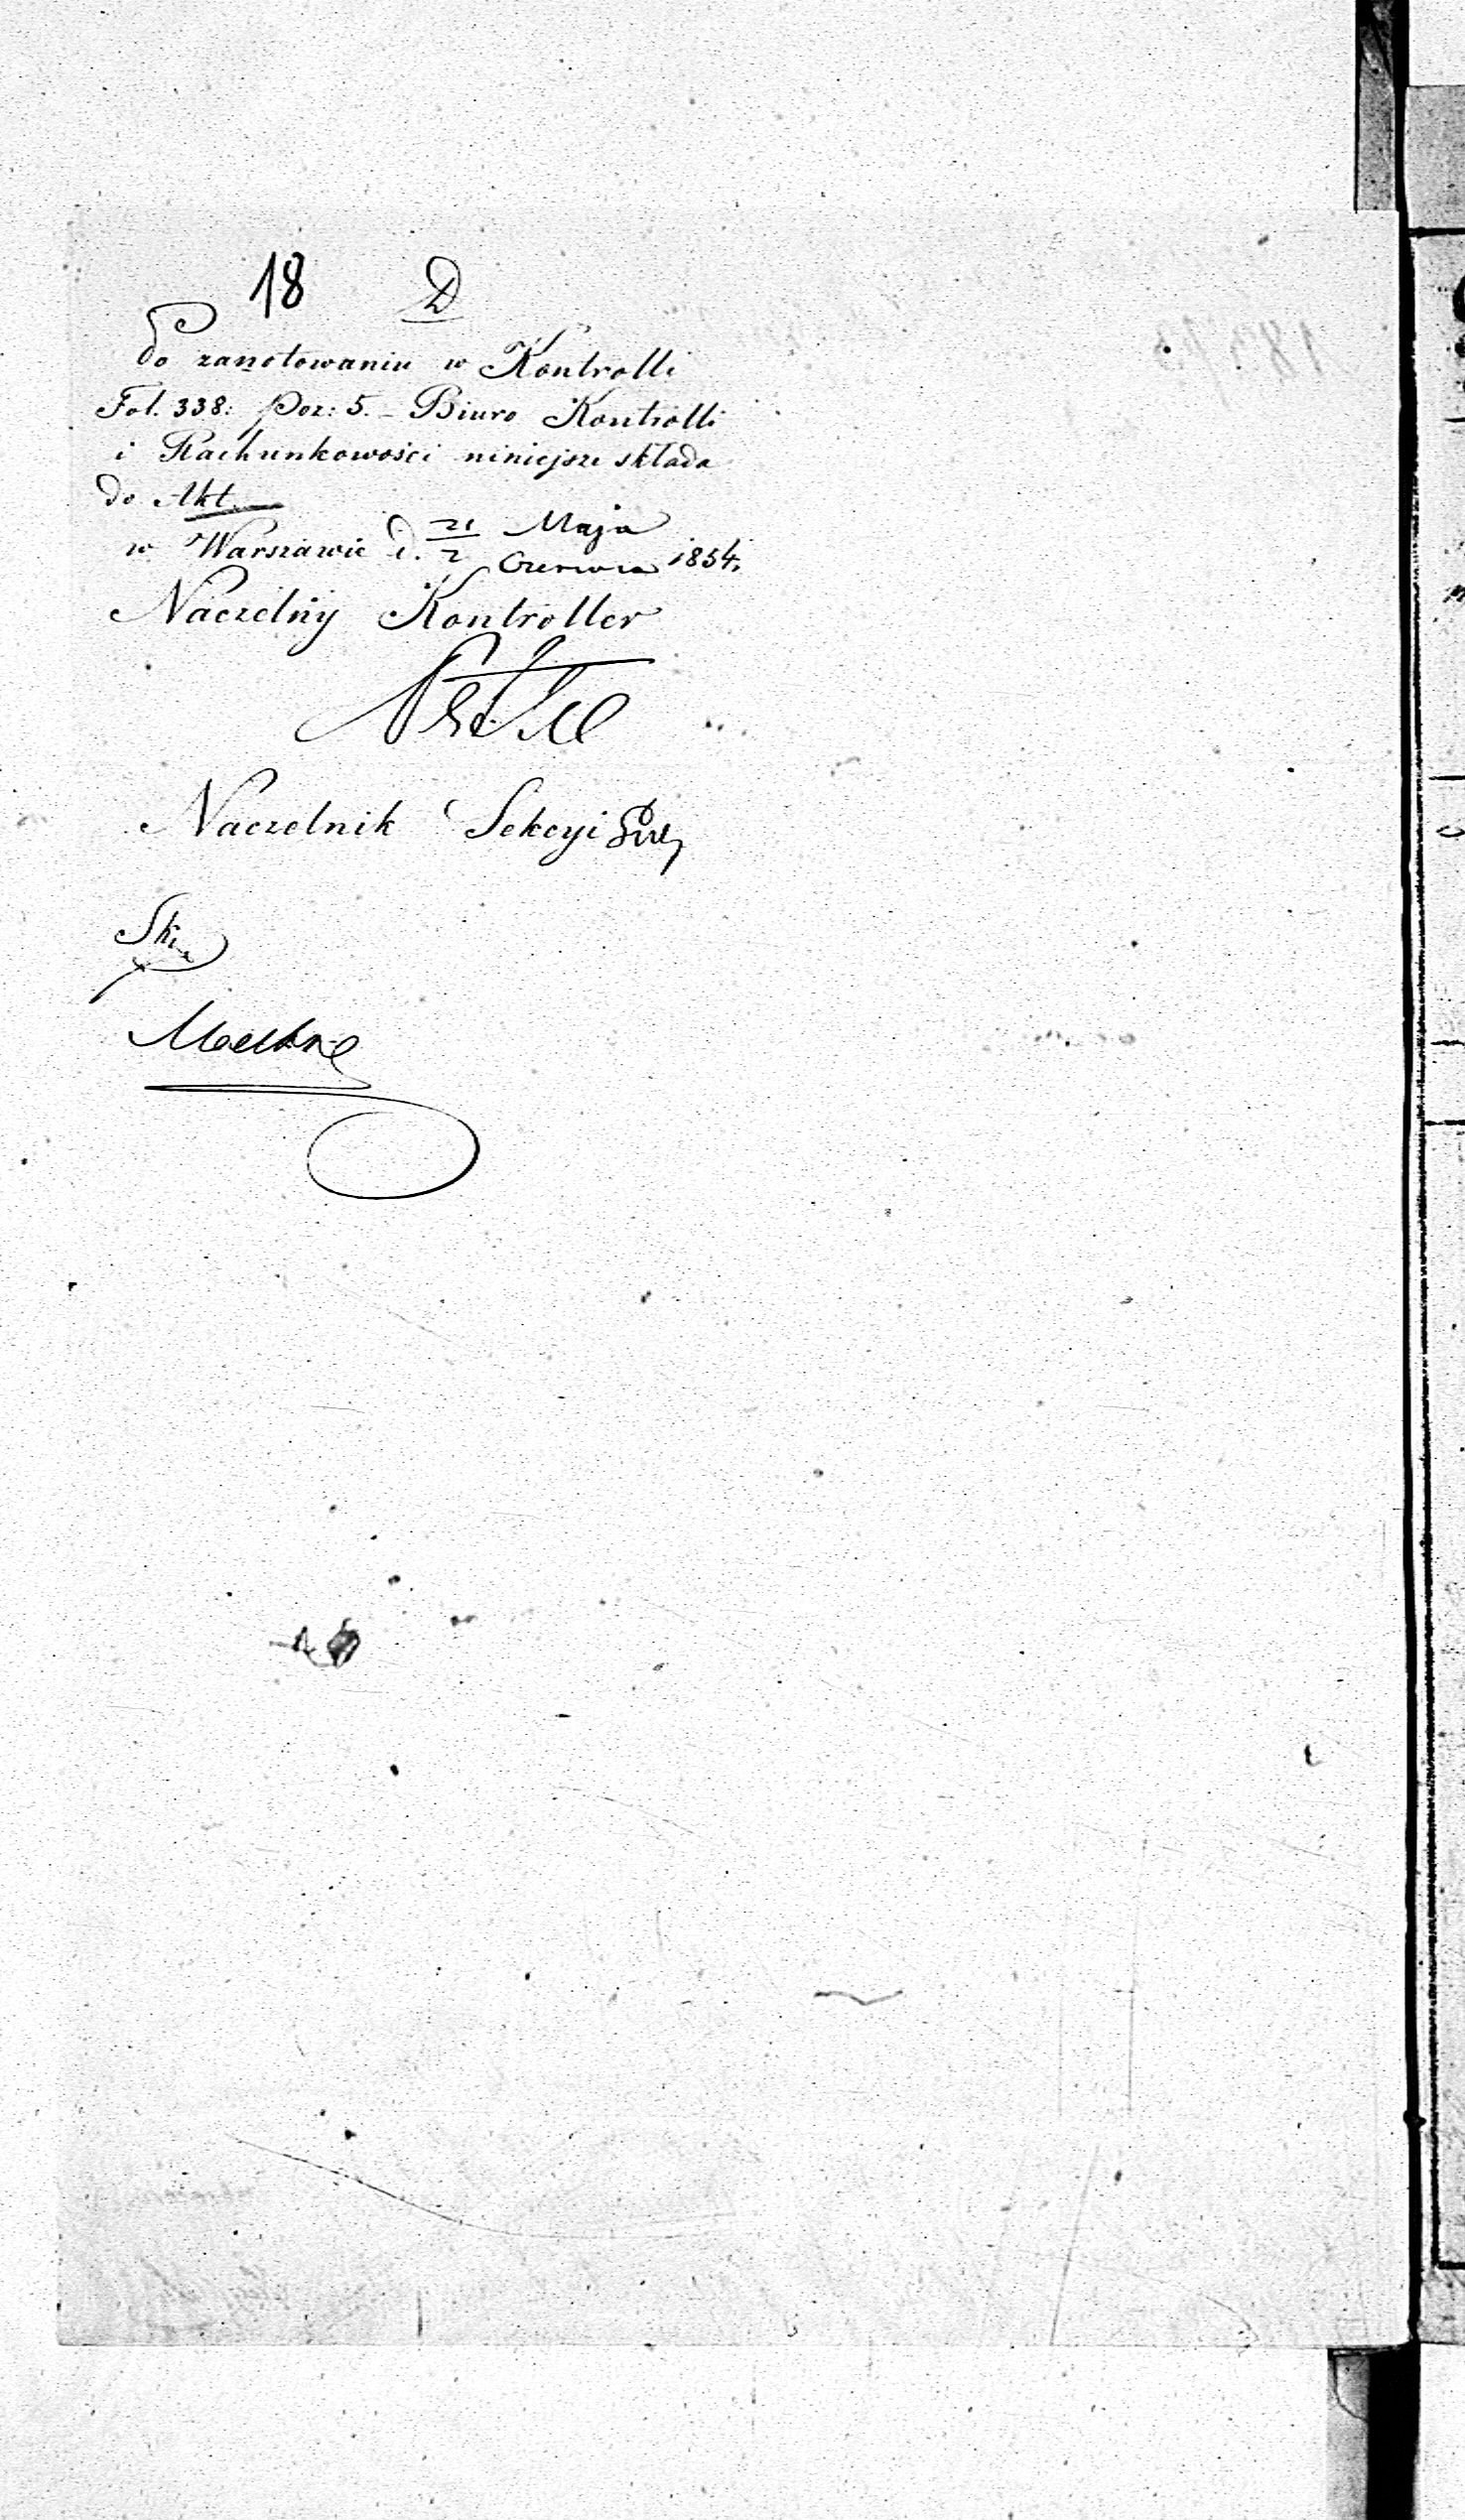 18 D
Po zanotowaniu w Kontrolli
Fol. 338: Poz: 5. – Biuro Kontrolli
i Rachunkowości niniejsze składa
do Akt.
w Warszawie d. 21/2 Maja/Czerwca 1854.
Naczelny Kontroller
Naczelnik Sekcyi